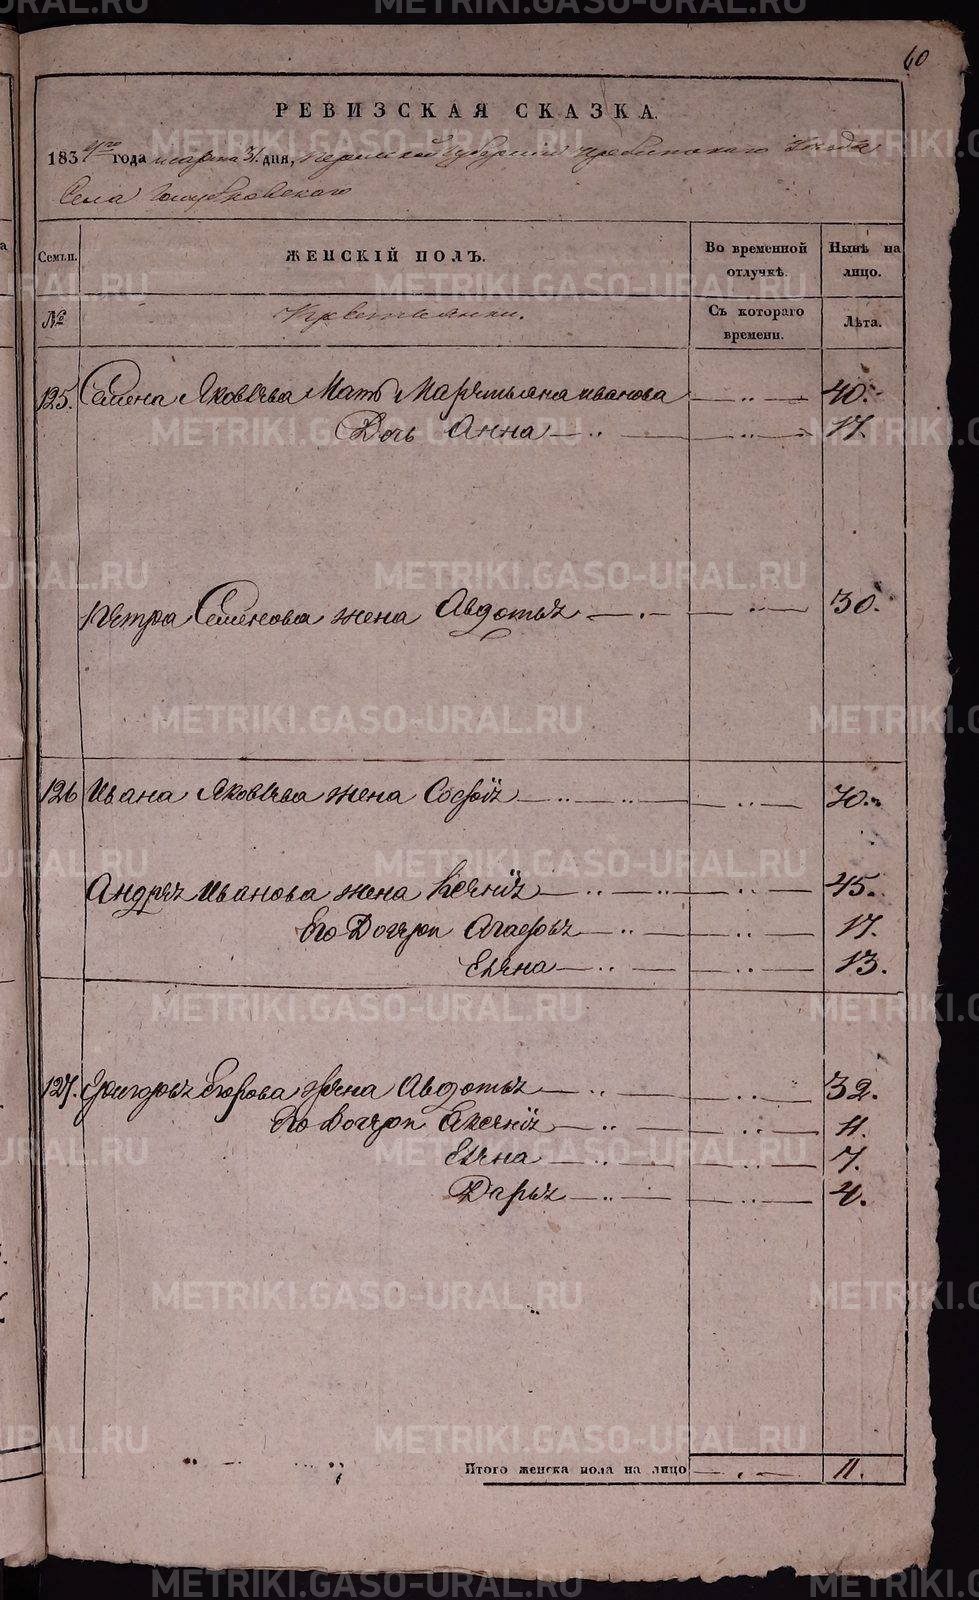 60
РЕВИЗСКАЯ СКАЗКА.
1834го года марта 31. дня, Пермской Губернии Ирбитского Уезда
Села
Семьи. ЖЕНСКІЙ ПОЛЪ. Во временной отлучкѣ. Нынѣ на лицо.
№ Крестьянки. Съ котораго времени. Лѣта.
125. Семена Яковлева Мать Маремьяна иванова — „ — 40.
Дочь Анна — „ — 17.
Петра Семенова жена Авдотья — „ — 30.
126 Ивана Яковлева жена Софья — „ — 70.
Андрея Иванова жена Ксенія — „ — 45.
Его Дочери Агафья — „ — 17.
Елена — „ — 13.
127. Григорья Егорова жена Авдотья — „ — 32.
Его Дочери Аксенія — „ — 11.
Елена — „ — 7.
Дарья — „ — 4.
Итого женска пола на лицо — „ — 11.
METRIKI.GASO-URAL.RU